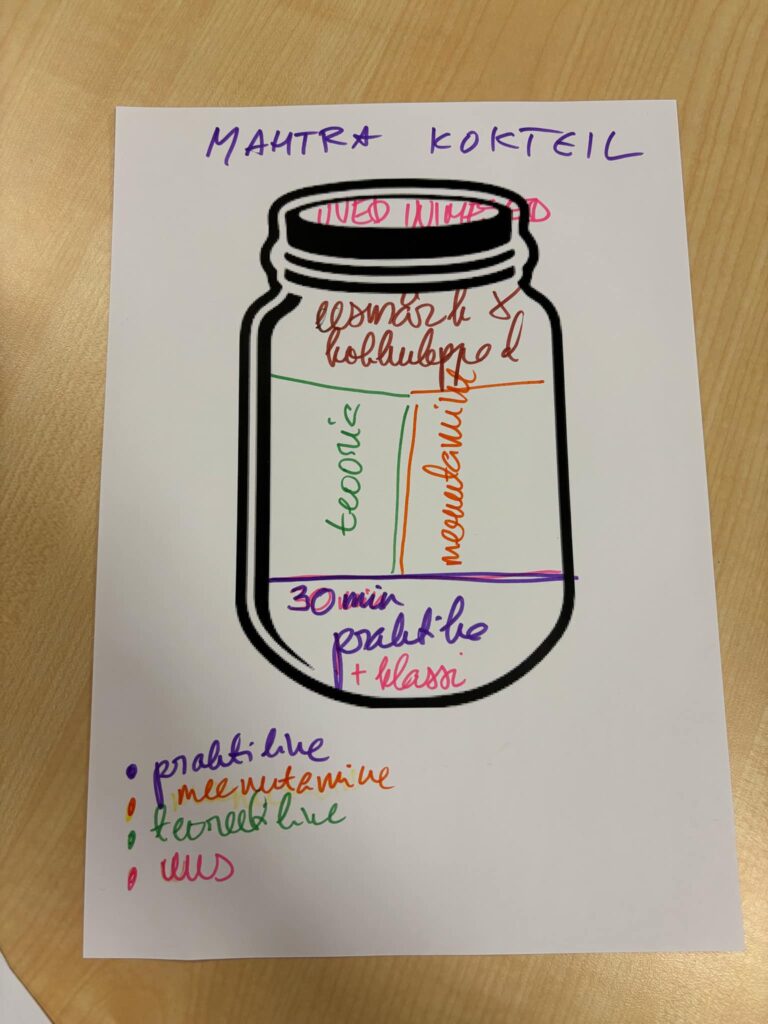 MAHTRA KOKTEIL
UUED INIMESED
eesmärk &
kokkulepped
teooria
meenutamine
30 min
praktika
+ klassi
• praktiline
• meenutamine
• teoreetiline
• uus